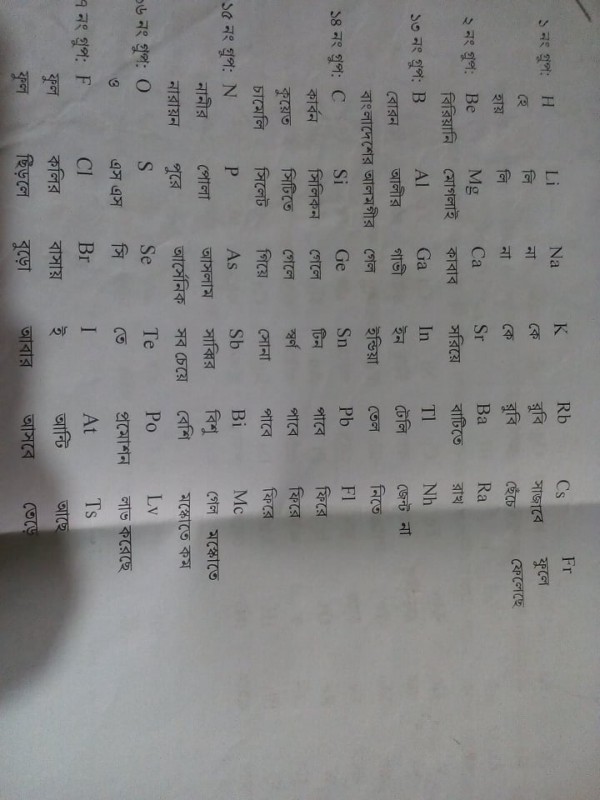 ১ নং গ্রুপ: H Li Na K Rb Cs Fr
হে লি না কে রুবি সাজাবে ফুলে
হায় লি না কে রুবি ছেঁচে ফেলেছে
২ নং গ্রুপ: Be Mg Ca Sr Ba Ra
বিরিয়ানি মোগলাই কাবাব সরিয়ে বাটিতে রাখ
১৩ নং গ্রুপ: B Al Ga In Tl Nh
বোরন আলীর গাভী ইন টেলি জেন্ট না
বাংলাদেশের আলমগীর গেল ইন্ডিয়া তেল নিতে
১৪ নং গ্রুপ: C Si Ge Sn Pb Fl
কার্বন সিলিকন গেলে টিন পাবে ফিরে
কুয়েত সিটিতে গেলে স্বর্ণ পাবে ফিরে
চামেলি সিলেট গিয়ে সোনা পাবে ফিরে
১৫ নং গ্রুপ: N P As Sb Bi Mc
নানীর পোলা আসলাম সাব্বির বিশু গেল মস্কোতে
নারায়ন পুরে আর্সেনিক সব চেয়ে বেশি মস্কোতে কম
১৬ নং গ্রুপ: O S Se Te Po Lv
ও এস এস সি তে প্রমোশন লাভ করেছে
নং গ্রুপ: F Cl Br I At Ts
ফুল কলির বাসায় ই আন্টি আছে
ফুল ছিঁড়লে বুড়ো আবার আসবে তেড়ে